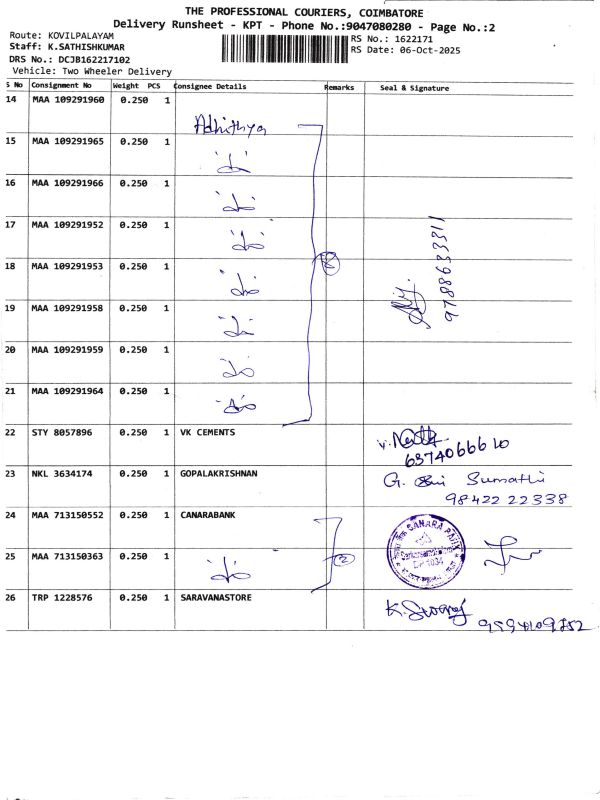 THE PROFESSIONAL COURIERS, COIMBATORE
Delivery Runsheet - KPT - Phone No.:9047080280 - Page No.:2
Route: KOVILPALAYAM
RS No.: 1622171
Staff: K.SATHISHKUMAR
RS Date: 06-Oct-2025
DRS No.: DCJB162217102
Vehicle: Two Wheeler Delivery
S No Consignment No Weight PCS Consignee Details Remarks Seal & Signature
14 MAA 109291960 0.250 1 Adhithya
15 MAA 109291965 0.250 1
16 MAA 109291966 0.250 1
17 MAA 109291952 0.250 1
18 MAA 109291953 0.250 1 8
9788633311
19 MAA 109291958 0.250 1
20 MAA 109291959 0.250 1
21 MAA 109291964 0.250 1
22 STY 8057896 0.250 1 VK CEMENTS
6374066610
23 NKL 3634174 0.250 1 GOPALAKRISHNAN G. Sumathi
98422 22338
24 MAA 713150552 0.250 1 CANARABANK
CANARA
25 MAA 713150363 0.250 1 2
26 TRP 1228576 0.250 1 SARAVANASTORE